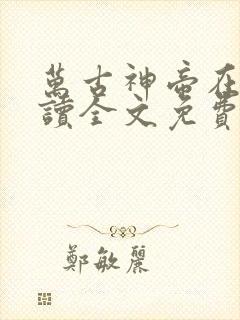 萬古神帝在
讀全文免費
鄭敏麗